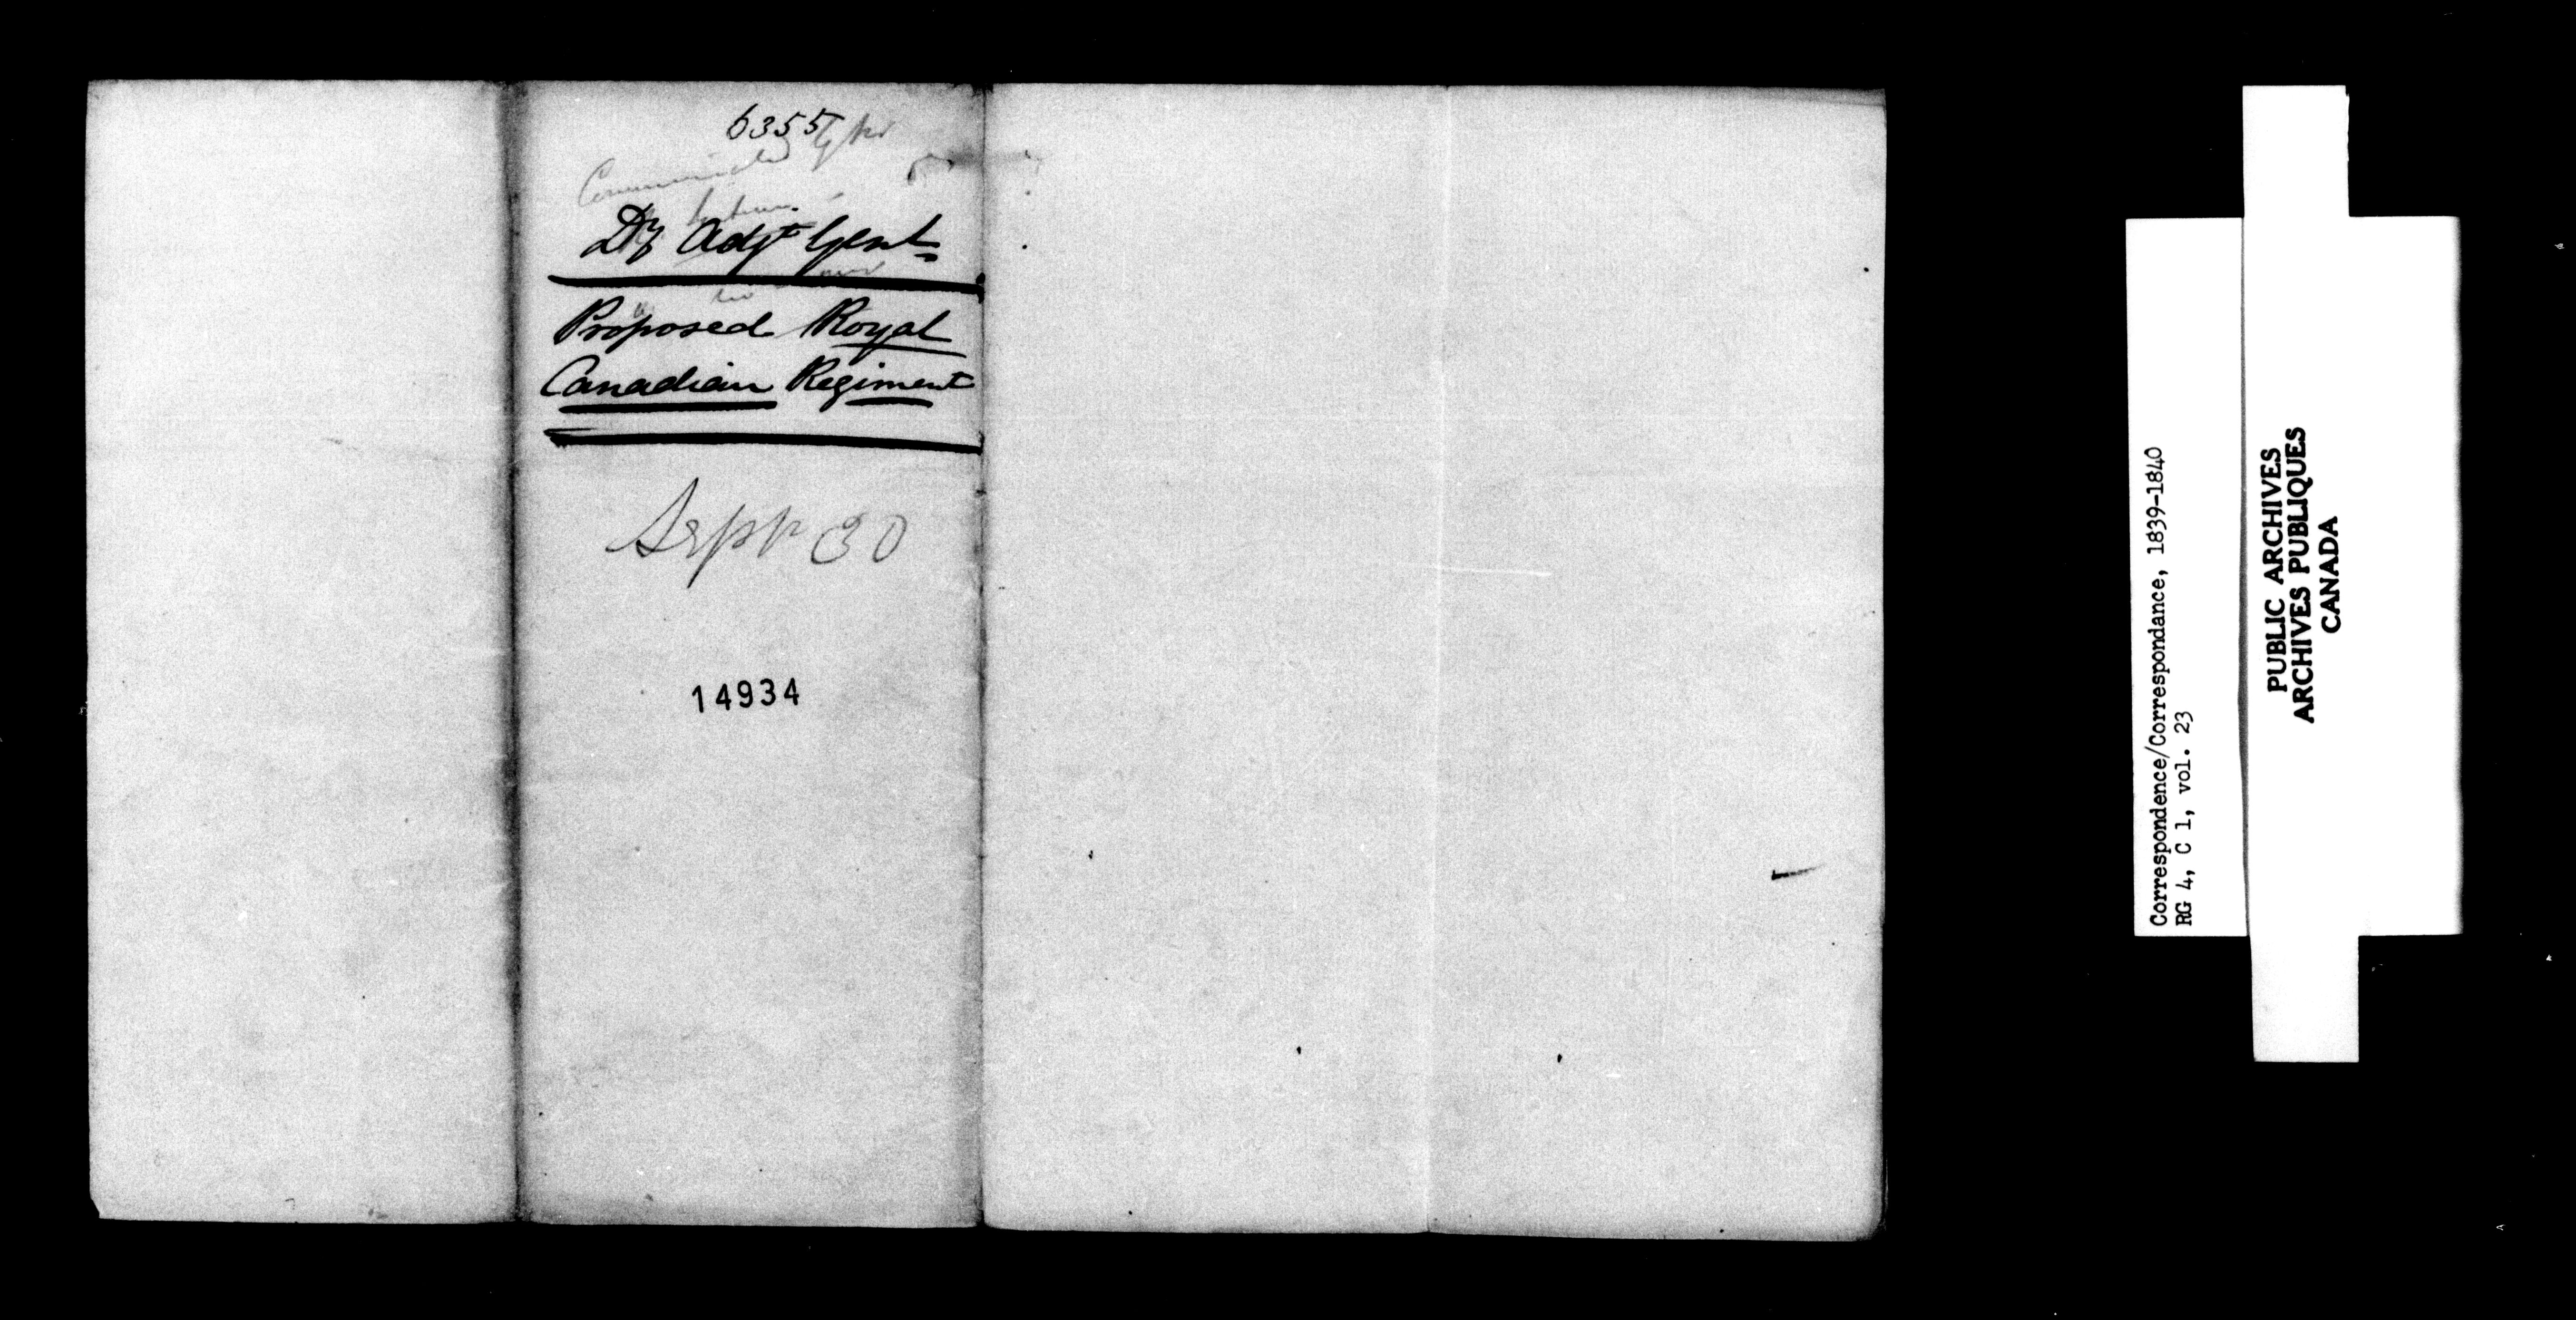 6355
Dy Adjt Genl
Proposed Royal
Canadian Regiment
Sept 30
14934
Correspondence/Correspondance, 1839-1840
RG 4, C 1, vol. 23
PUBLIC ARCHIVES
ARCHIVES PUBLIQUES
CANADA